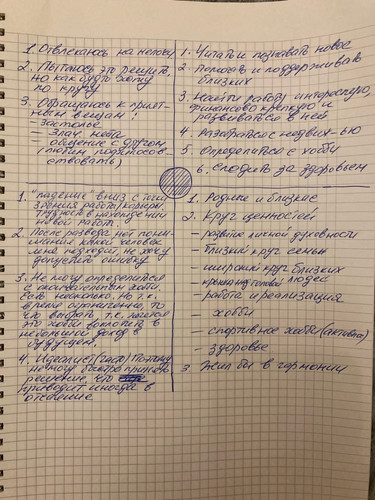 1. Отвлекаюсь на непонят
2. Пытаюсь это решить
но как будто захожу
по кругу
3. Обращаюсь к прият-
ным вещам:
- Застолье
- Знач. нета
- общение с другом
(потом
ствовать)
1. Читать и познавать новое
2. Помогаю и поддерживаю
близких
3. Найти работу интересную,
финансово крепкую и
развиваться в ней
4. Разобраться с недвиж-ью
5. Определиться с хобби
6. Следить за здоровьем
1. "падение" вниз с точки
зрения работы, карьеры
трудность в нахождении
новой работ.
2. После развода нет пони-
мания какой человек
мне подходит, не хочу
допустить ошибку
3. Не могу определиться
с окончательным хобби.
Есть несколько. Но т.к.
время ограничено, то
что выбрать, т.к. хочется
это хобби воплотить в
небольшой доход в
будущем.
4. Идеалист (часто) Поэтому
не могу быстро принять
решение, что
приводит иногда в
отчаяние
1. Родные и близкие
2. Круг ценностей
- развитие личной духовности
- близкий круг семьи
- широкий круг близких
людей
- крыша над головой
- работа и реализация
- хобби
- спортивное хобби (активна)
- здоровье
3. Жил бы в гармонии